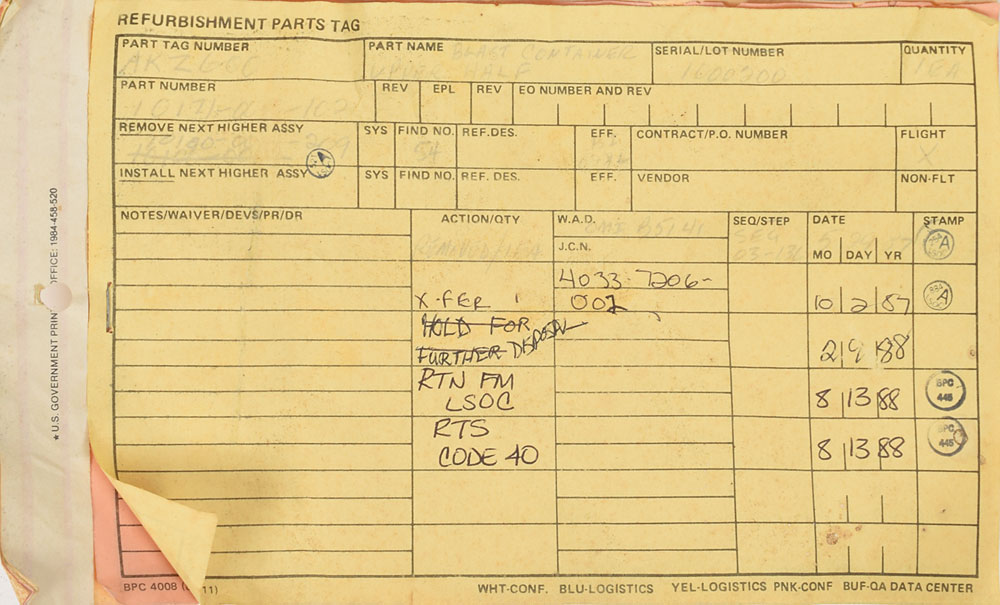 REFURBISHMENT PARTS TAG
PART TAG NUMBER PART NAME BLAST CONTAINER SERIAL/LOT NUMBER QUANTITY
HALF 1600200 1EA
PART NUMBER REV EPL REV EO NUMBER AND REV
REMOVE NEXT HIGHER ASSY SYS FIND NO. REF.DES. EFF. CONTRACT/P.O. NUMBER FLIGHT
54 X
INSTALL NEXT HIGHER ASSY SYS FIND NO. REF. DES. EFF. VENDOR NON-FLT
NOTES/WAIVER/DEVS/PR/DR ACTION/QTY W.A.D. SEQ/STEP DATE STAMP
J.C.N. MO DAY YR A
4033-7206-
X-FER 1 002 10 2 87 A
HOLD FOR
FURTHER DISPOSN 2 9 88
RTN FM
LSOC 8 13 88 BPC 445
RTS
CODE 40 8 13 88 BPC 445
BPC 4008 11)
WHT-CONF. BLU-LOGISTICS YEL-LOGISTICS PNK-CONF BUF-QA DATA CENTER
★ U.S. GOVERNMENT PRIN OFFICE: 1984-458-520